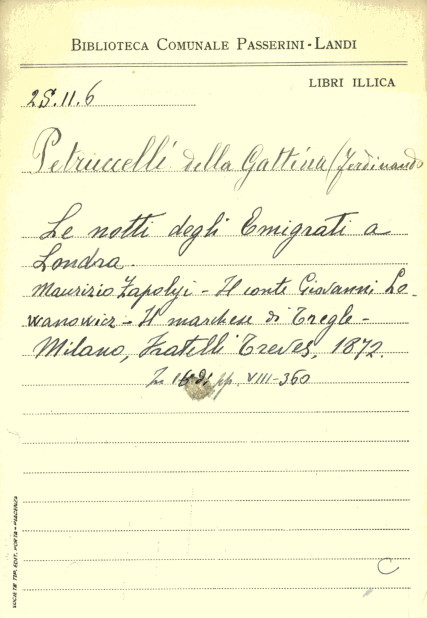 BIBLIOTECA COMUNALE PASSERINI-LANDI
LIBRI ILLICA
2S.11.6
Petruccelli della Gattina (Ferdinando
Le notti degli Emigrati a
Londra.
Maurizio Zapolyi - Il conte Giovanni Lo-
wanowicz - Il marchese di Tregle -
Milano, Fratelli Treves, 1872.
In 16 di pp. VIII-360
SOCIETÀ TIP. EDIT. PORTA - PIACENZA
C